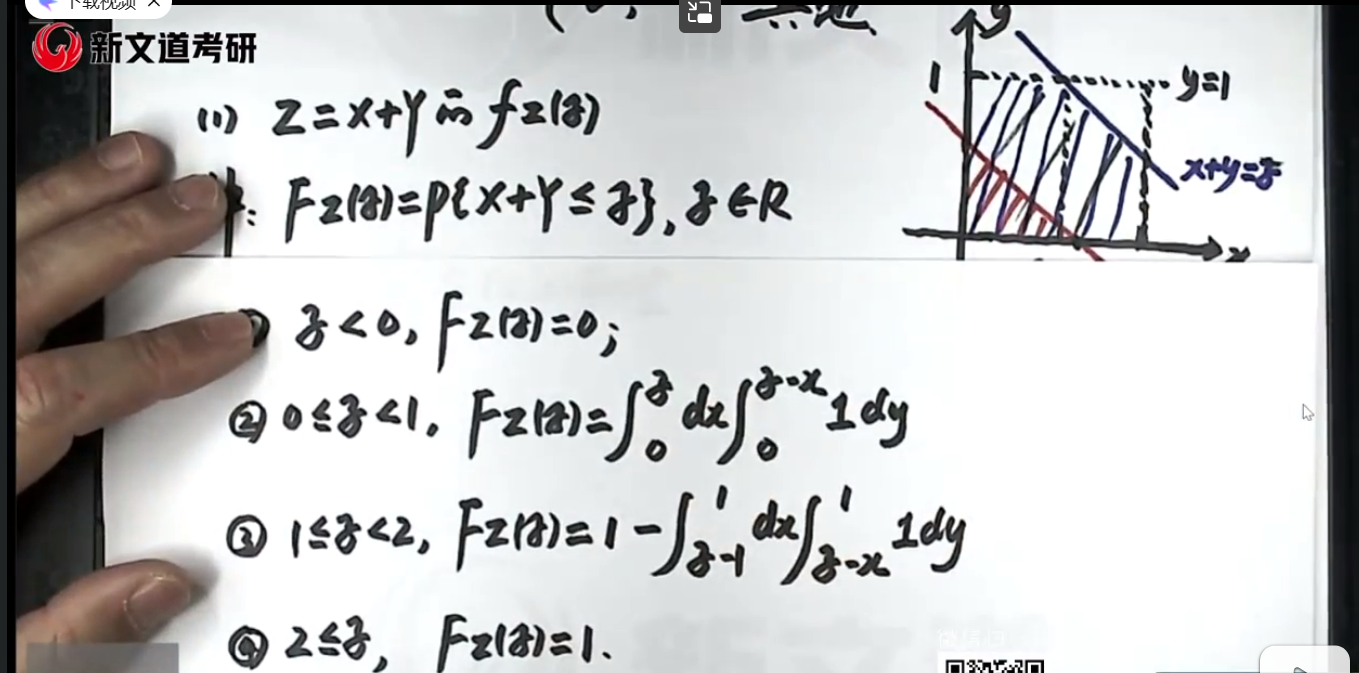 下载视频
新文道考研
(1) Z=X+Y的 fz(z)
Fz(z)=P{X+Y≤z}, z∈R
y
1
y=1
x+y=z
x
z<0, Fz(z)=0;
② 0≤z<1, Fz(z)=∫₀^z dx∫₀^(z-x) 1dy
③ 1≤z<2, Fz(z)=1-∫_(z-1)^1 dx∫_(z-x)^1 1dy
④ 2≤z, Fz(z)=1.